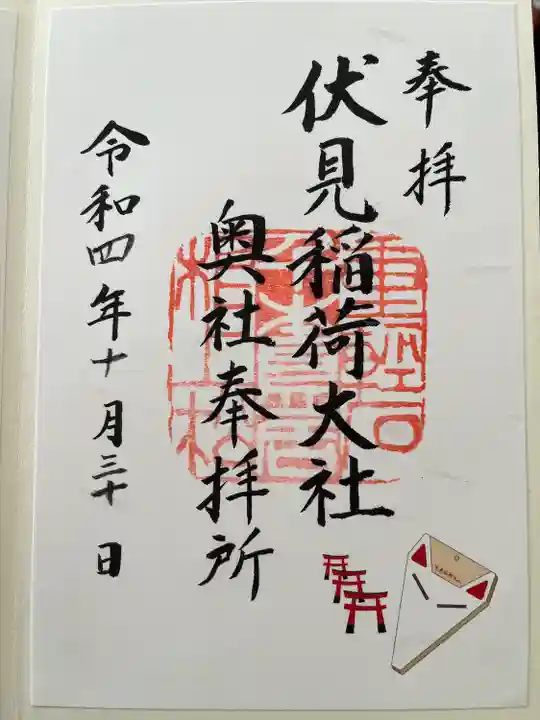 奉拝
伏見稲荷大社
奥社奉拝所
令和四年十月三十日